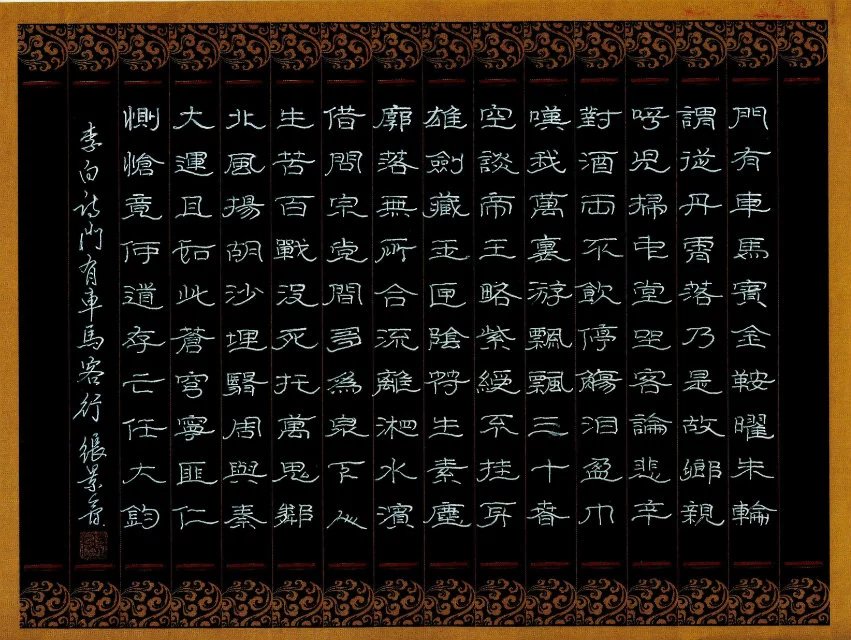 門有車馬賓金鞍曜朱輪
謂從丹霄落乃是故鄉親
呼兒掃中堂坐客論悲辛
對酒兩不飲停觴泪盈巾
嘆我萬裏游飄飄三十春
空談帝王略紫綬不挂身
雄劍藏玉匣陰符生素塵
廓落無所合流離湘水濱
借問宗党間多爲泉下人
生苦百戰没死托萬鬼鄰
北風揚胡沙埋翳周與秦
大運且如此蒼穹寧匪仁
惻愴竟何道存亡任大鈞
李白詩門有車馬客行 張景